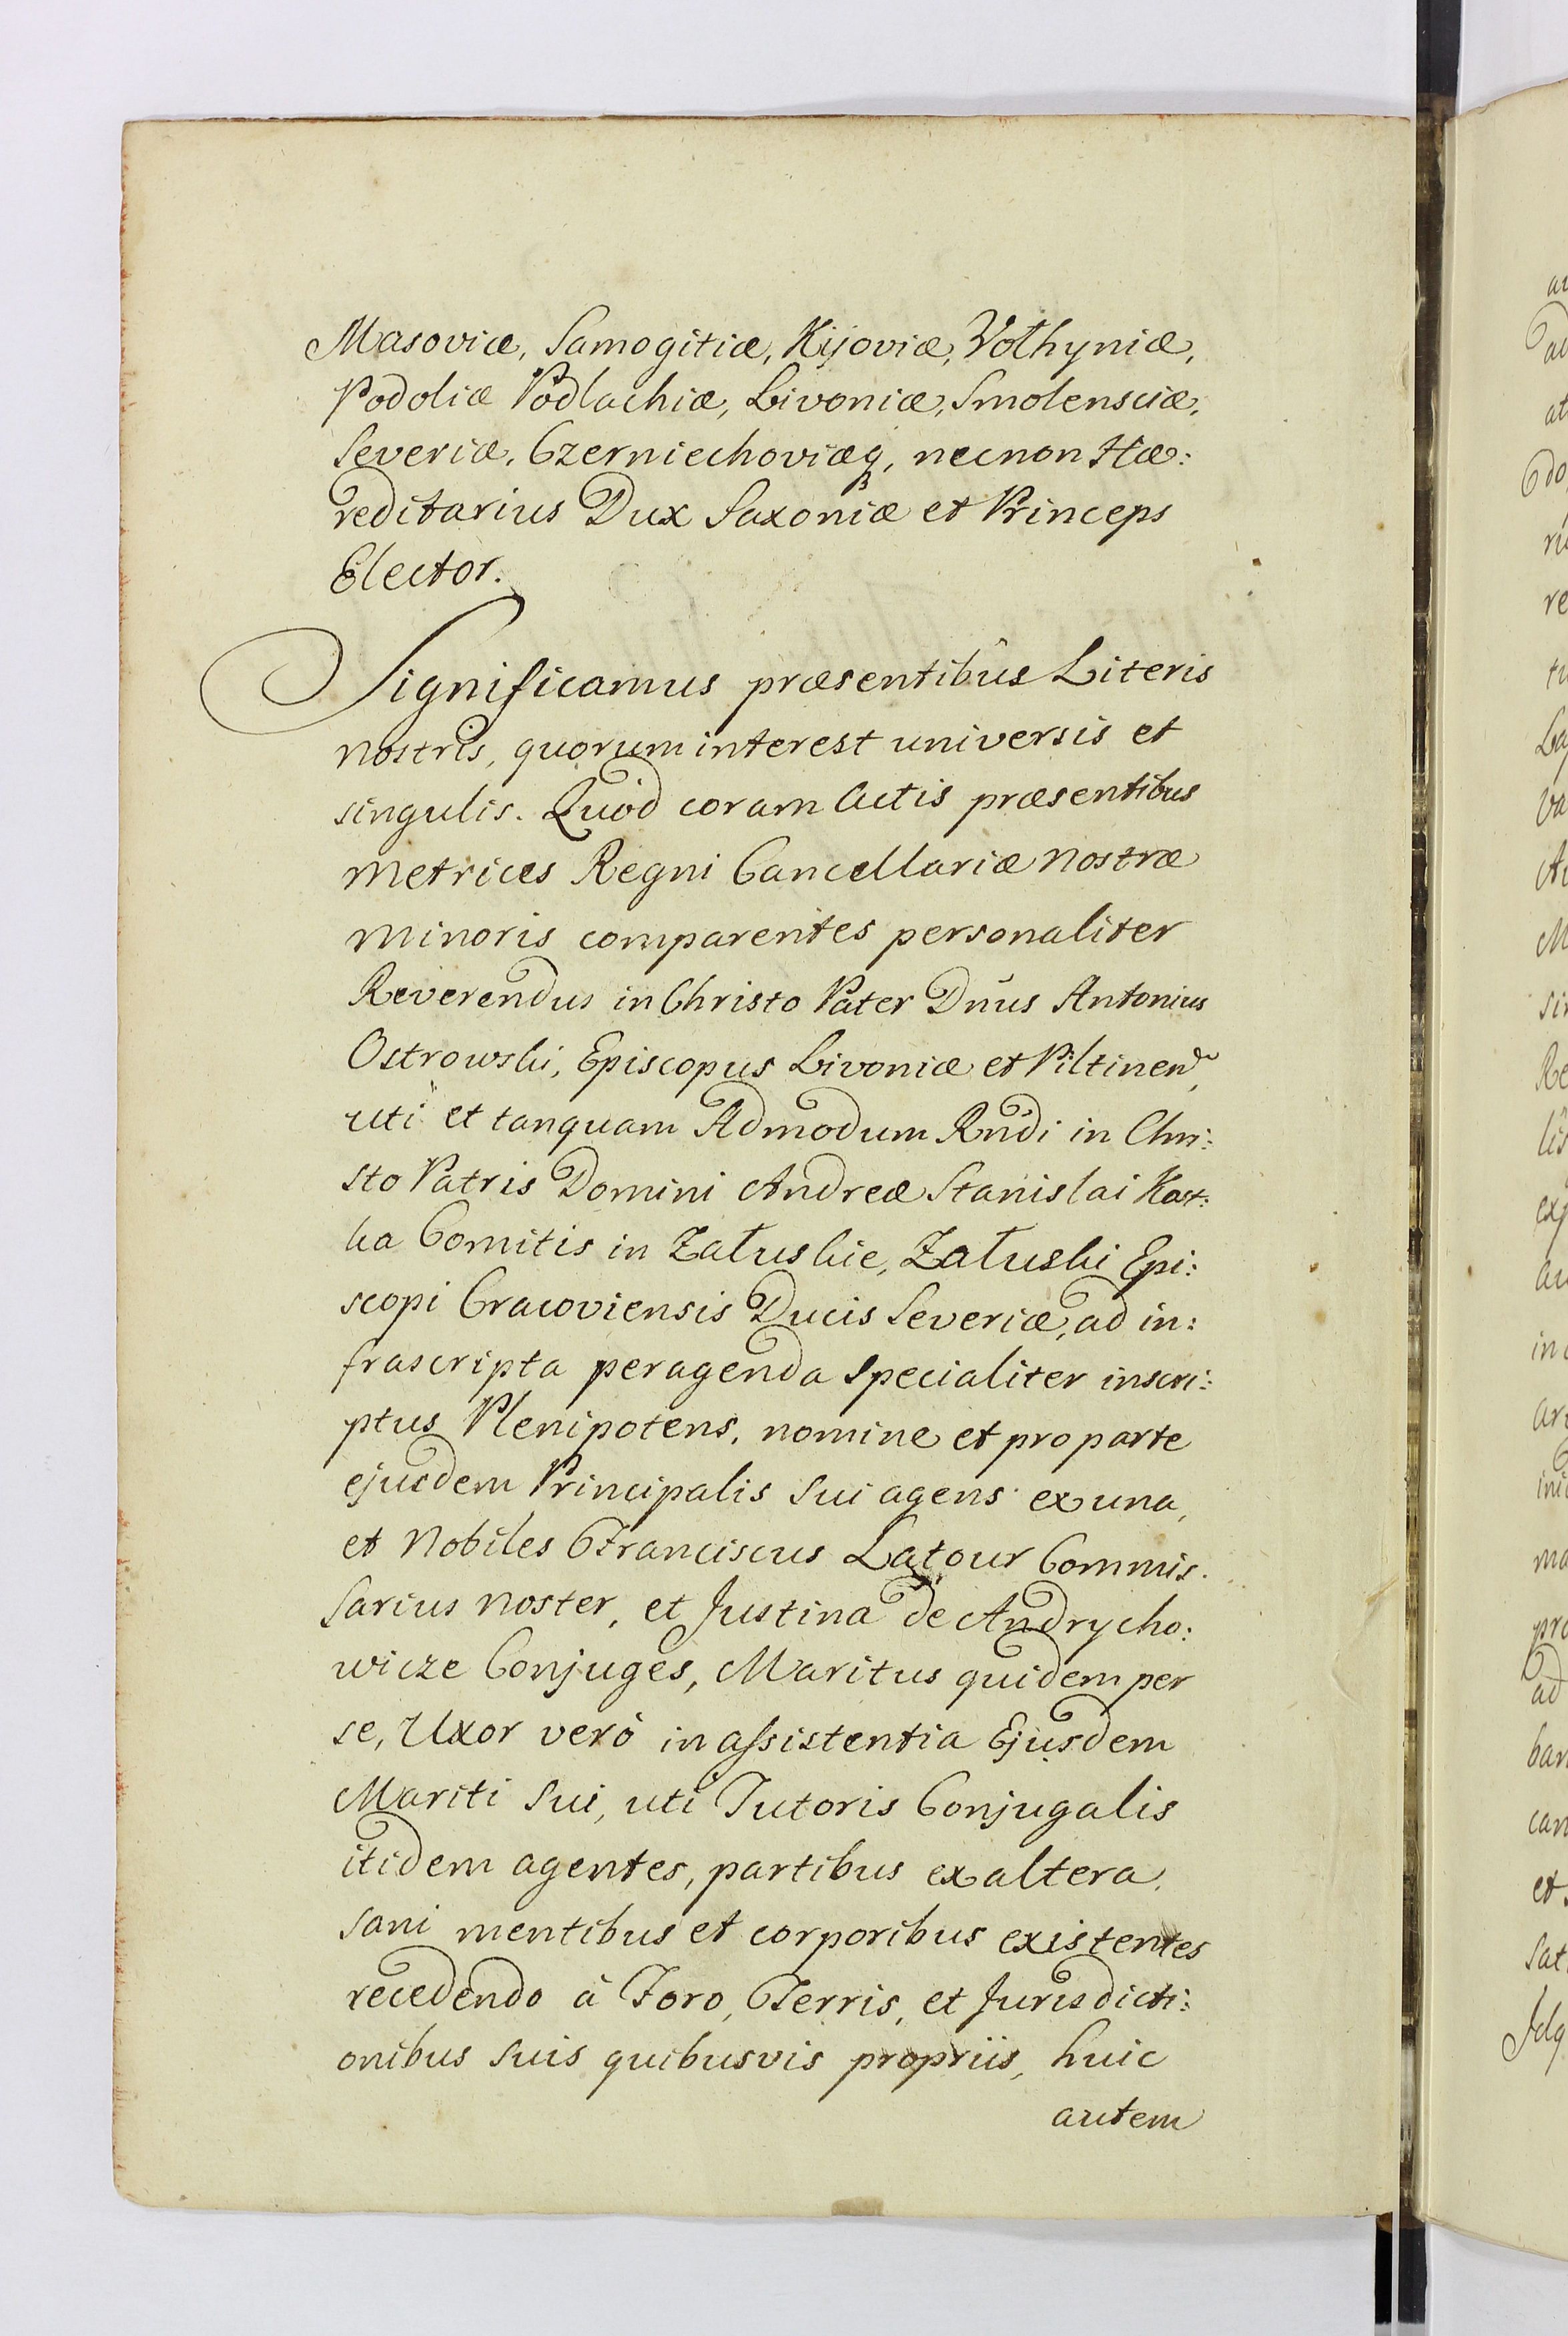 Masoviæ, Samogitiæ, Kijoviæ, Wołhyniæ,
Podoliæ Podlachiæ, Livoniæ, Smolensciæ,
Severiæ, Czerniechoviæq₃, necnon Hæ:
reditarius Dux Saxoniæ et Princeps
Elector.
Significamus præsentibûs Literis
nostris, quorum interest universis et
singulis. Quod coram Actis præsentibus
Metrices Regni Cancellariæ nostræ
Minoris comparentes personaliter
Reverendus in Christo Pater Dñus Antonius
Ostrowski, Episcopus Livoniæ et Piltinen,
uti et tanquam Admodum Rñdi in Chri:
sto Patris Domini Andreæ Stanislai Kost:
ka Comitis in Załuskie, Załuski Epi:
scopi Cracoviensis Ducis Severiæ, ad in:
frascripta peragenda specialiter inscri:
ptus Plenipotens, nomine et pro parte
ejusdem Principalis sui agens ex una,
et Nobiles Franciscus Latour Commis.
sarius noster, et Justina de Andrycho:
wicze Conjuges, Maritus quidem per
se, Uxor verò in assistentia Ejusdem
Mariti sui, uti Tutoris Conjugalis
itidem agentes, partibus ex altera.
sani mentibus et corporibus existentes
recedendo à Foro, Terris, et Jurisdicti:
onibus suis quibusvis propriis, huic
autem